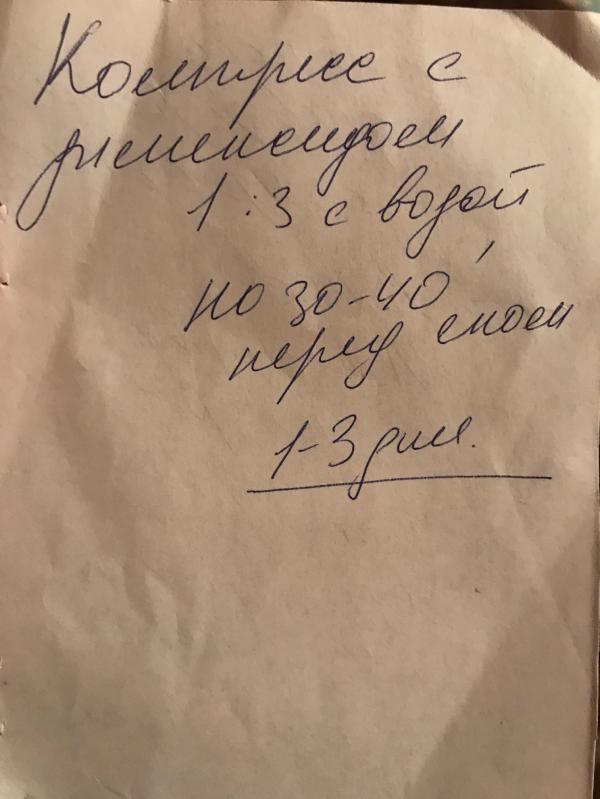 Компресс с
димексидом
1:3 с водой
по 30-40'
перед сном
1-3 дня.